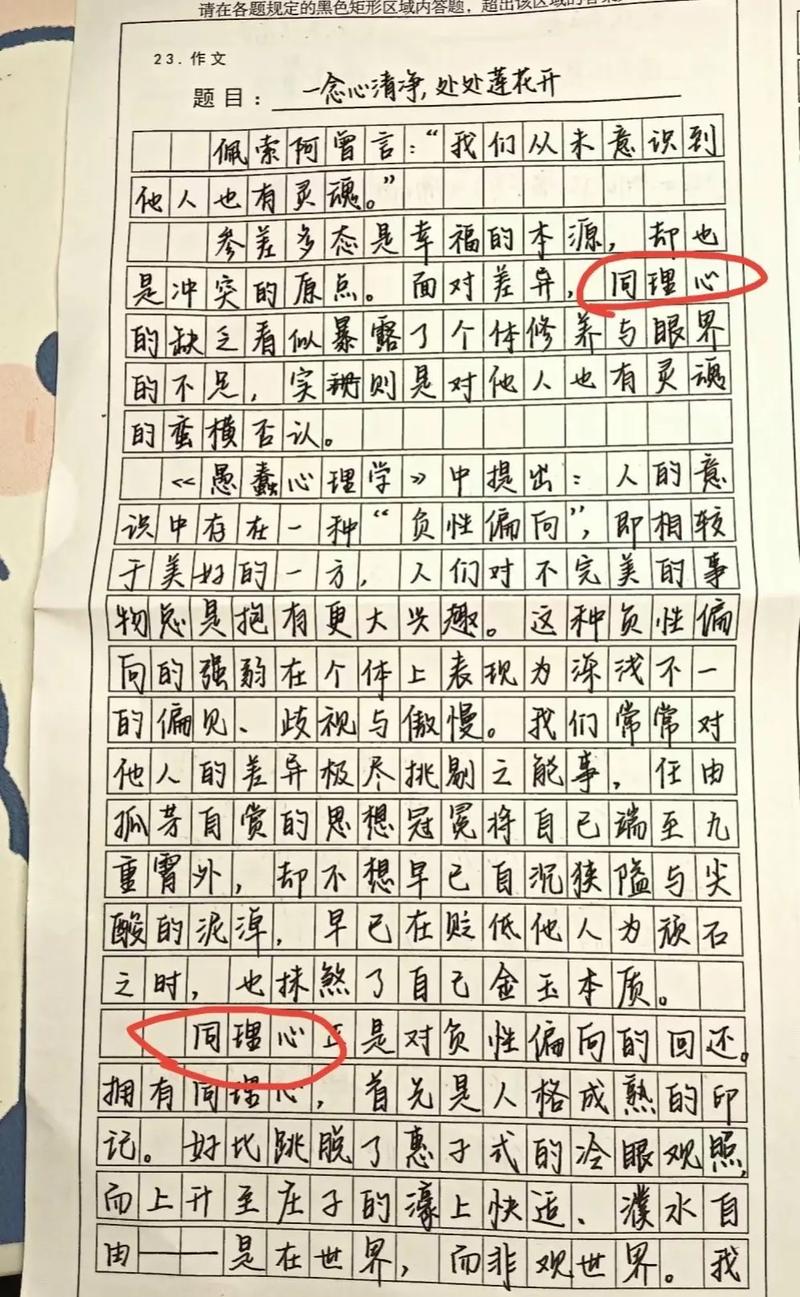 请在各题规定的黑色矩形区域内答题，超出该区域的答案
23.作文
题目：一念心清净,处处莲花开
佩索阿曾言：“我们从未意识到
他人也有灵魂。”
参差多态是幸福的本源，却也
是冲突的原点。面对差异，同理心
的缺乏看似暴露了个体修养与眼界
的不足，实则是对他人也有灵魂
的蛮横否认。
《愚蠢心理学》中提出：人的意
识中存在一种“负性偏向”，即相较
于美好的一方，人们对不完美的事
物总是抱有更大兴趣。这种负性偏
向的强弱在个体上表现为深浅不一
的偏见、歧视与傲慢。我们常常对
他人的差异极尽挑剔之能事，任由
孤芳自赏的思想冠冕将自己端至九
重霄外，却不想早已自沉狭隘与尖
酸的泥淖，早已在贬低他人为顽石
之时，也抹煞了自己金玉本质。
同理心正是对负性偏向的回还。
拥有同理心，首先是人格成熟的印
记。好比跳脱了惠子式的冷眼观照，
而上升至庄子的濠上快适、濮水自
由——是在世界，而非观世界。我